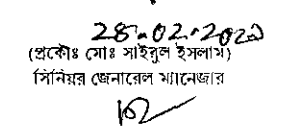 28.02.2022
(প্রকৌঃ মোঃ সাইফুল ইসলাম)
সিনিয়র জেনারেল ম্যানেজার